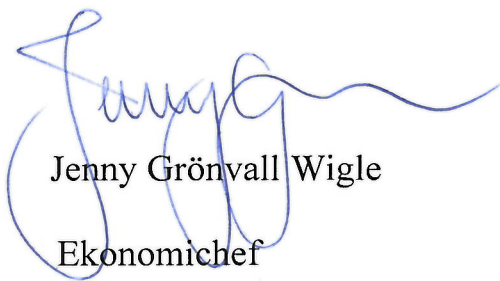 Jenny G
Jenny Grönvall Wigle
Ekonomichef